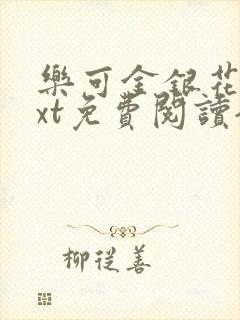 樂可金銀花
xt免費閱讀
柳從善